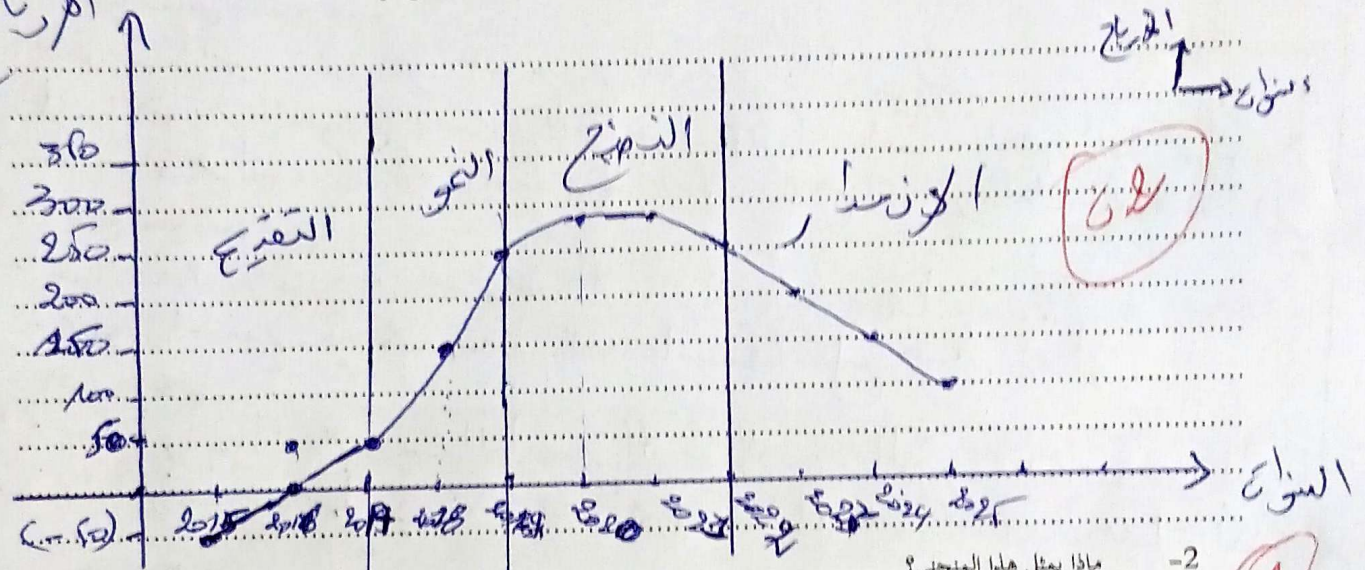 الأرباح
السنوات
350
300
250
200
150
100
50
(-50)
التقديم
النمو
النضج
الانحدار
2015 2016 2017 2018 2019 2020 2021 2022 2023 2024 2025
السنوات
2- ماذا يمثل هذا المنحنى ؟